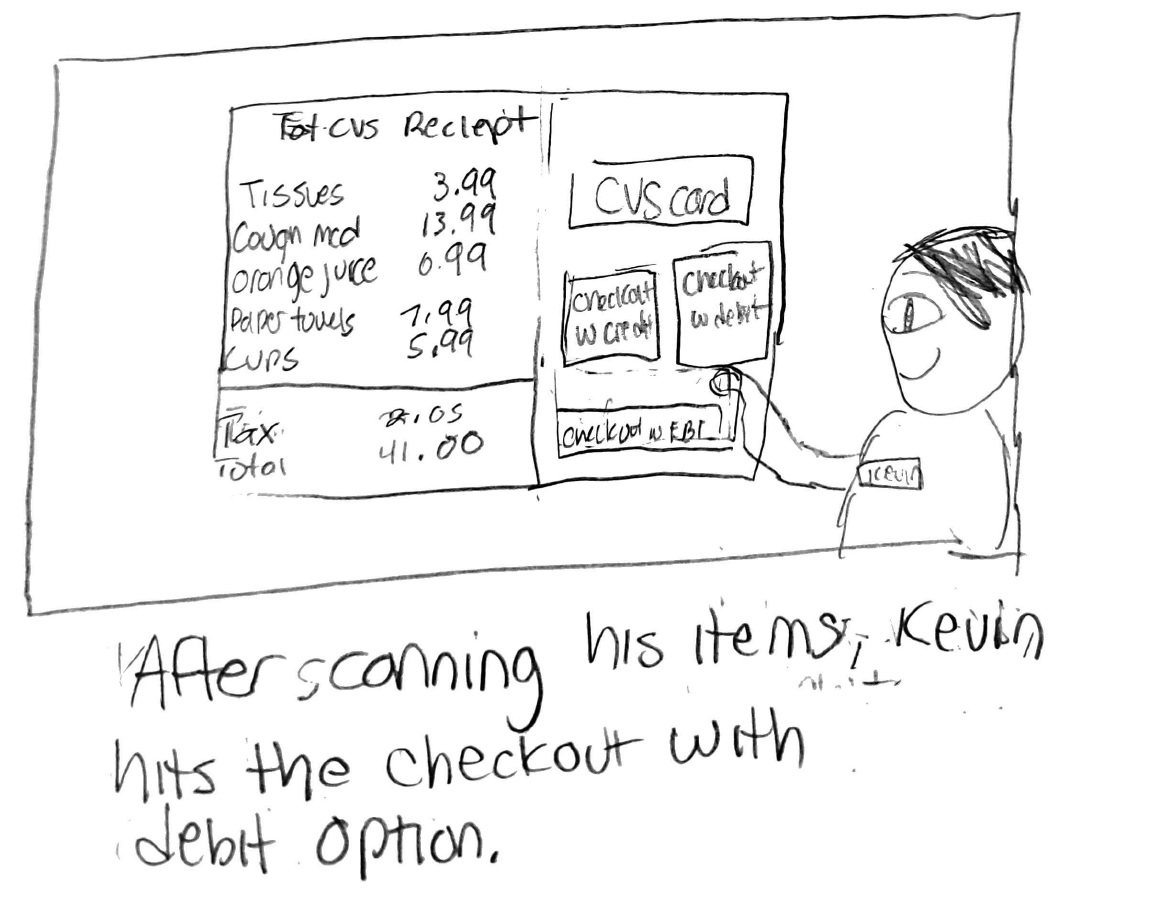 CVS Reciept
Tissues 3.99
Cough med 13.99
orange juice 6.99
Paper towels 7.99
Cups 5.99
Tax 2.05
Total 41.00
CVS card
checkout
w credit
checkout
w debit
checkout w EBT
Kevin
After scanning his items, Kevin
hits the checkout with
debit option.